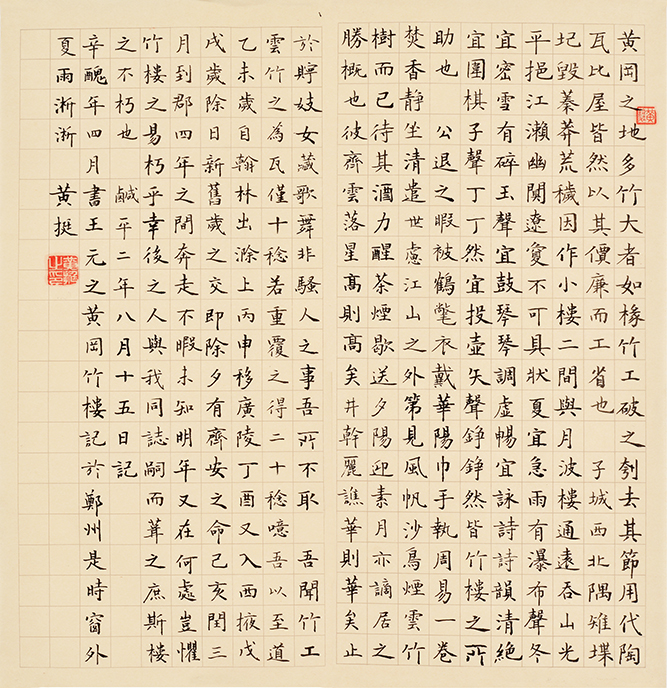 黄岡之地多竹大者如椽竹工破之刳去其節用代陶
瓦比屋皆然以其價廉而工省也 子城西北隅雉堞
圮毀蓁莽荒穢因作小樓二間與月波樓通遠吞山光
平挹江瀨幽闃遼夐不可具狀夏宜急雨有瀑布聲冬
宜密雪有碎玉聲宜鼓琴琴調虛暢宜詠詩詩韻清絕
宜圍棋子聲丁丁然宜投壺矢聲錚錚然皆竹樓之所
助也 公退之暇被鶴氅衣戴華陽巾手執周易一卷
焚香静坐清遣世慮江山之外第見風帆沙鳥煙雲竹
樹而已待其酒力醒茶煙歇送夕陽迎素月亦謫居之
勝概也彼齊雲落星高則高矣井幹麗譙華則華矣止
於貯妓女藏歌舞非騷人之事吾所不取 吾聞竹工
雲竹之為瓦僅十稔若重覆之得二十稔噫吾以至道
乙未歲自翰林出滁上丙申移廣陵丁酉又入西掖戊
戌歲除日新舊歲之交即除夕有齊安之命己亥閏三
月到郡四年之間奔走不暇未知明年又在何處豈懼
竹樓之易朽乎幸後之人與我同誌嗣而葺之庶斯樓
之不朽也 鹹平二年八月十五日記
辛醜年四月書王元之黄岡竹樓記於鄭州是時窗外
夏雨淅淅 黄挺